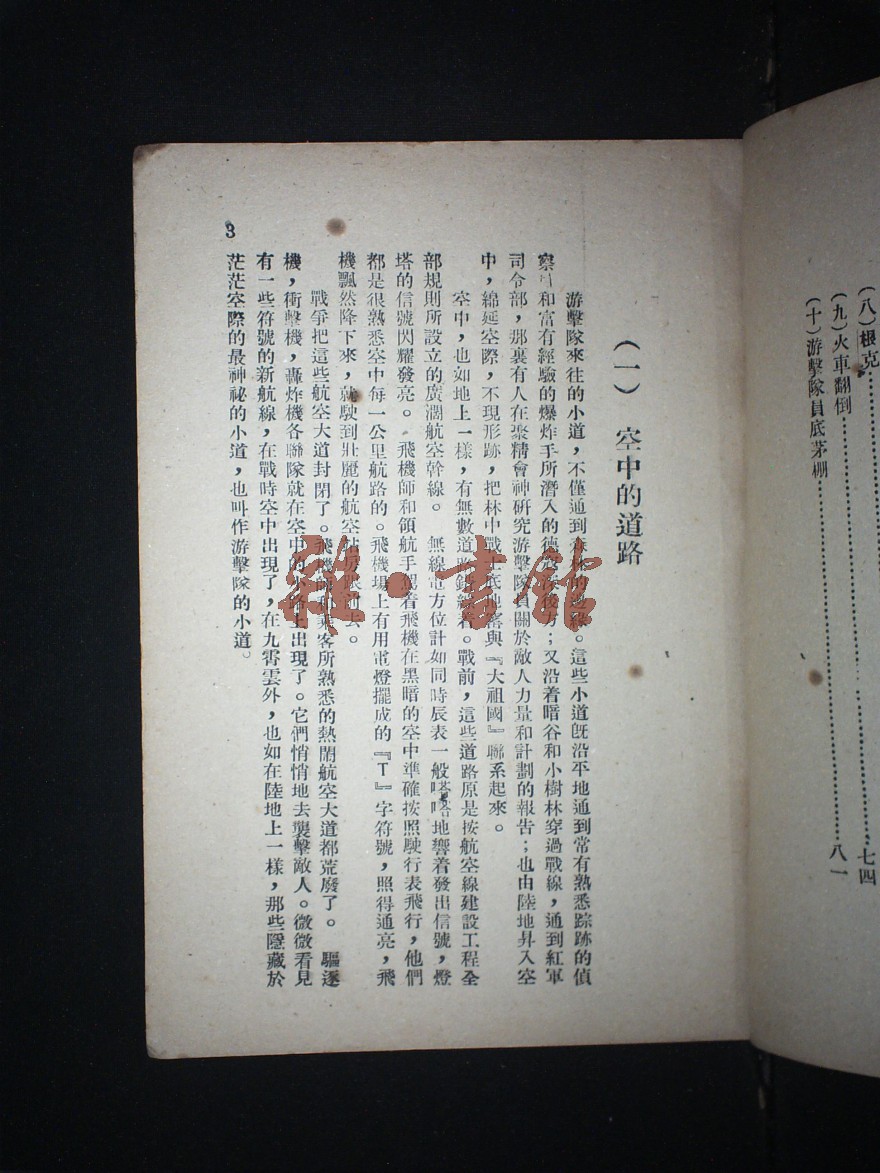 (八)根克……七四
(九)火車翻倒……
(十)游擊隊員底茅棚……八一
(一) 空中的道路
游擊隊來往的小道,不僅通到森林的邊緣。這些小道既沿平地通到常有熟悉踪跡的偵
察和富有經驗的爆炸手所潛入的德後方;又沿着暗谷和小樹林穿過戰線,通到紅軍
司令部,那裏有人在聚精會神研究游擊隊員關於敵人力量和計劃的報告;也由陸地昇入空
中,綿延空際,不現形跡,把林中戰士底地窖與『大祖國』聯系起來。
空中,也如地上一樣,有無數道路錯綜着。戰前,這些道路原是按航空線建設工程全
部規則所設立的廣濶航空幹線。無線電方位計如同時辰表一般嗒嗒地響着發出信號,燈
塔的信號閃耀發亮。飛機師和領航手引着飛機在黑暗的空中準確按照駛行表飛行,他們
都是很熟悉空中每一公里航路的。飛機場上有用電燈擺成的『T』字符號,照得通亮,飛
機飄然降下來,就駛到壯麗的航空站房跟前去。
戰爭把這些航空大道封閉了。飛機師和乘客所熟悉的熱鬧航空大道都荒廢了。驅逐
機,衝擊機,轟炸機各聯隊就在空中的小路上出現了。它們悄悄地去襲擊敵人。微微看見
有一些符號的新航線,在戰時空中出現了,在九霄雲外,也如在陸地上一樣,那些隱藏於
茫茫空際的最神祕的小道,也叫作游擊隊的小道。
3
雜·書館